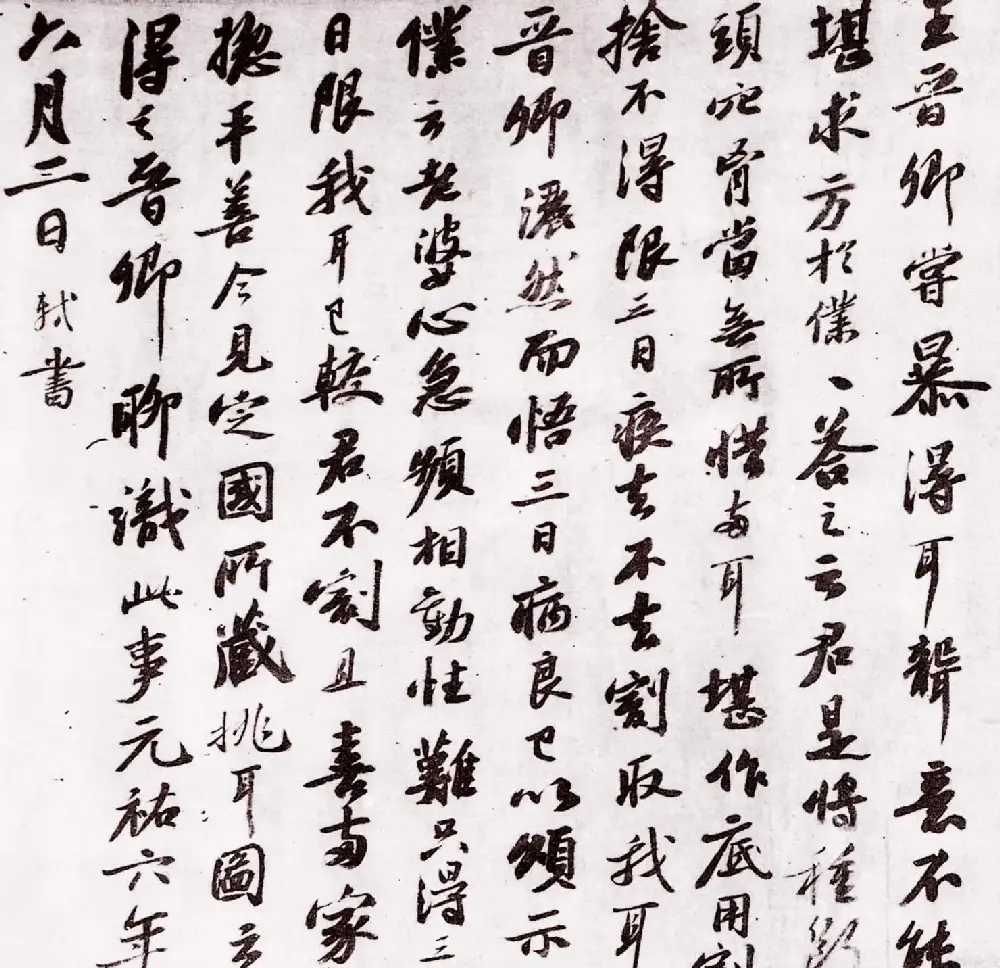 王晉卿嘗暴得耳聾意不能
堪求方於僕僕答之云君是將種斷
頭穴胷當無所惜兩耳堪作底用割
捨不得限三日疾去不去割取我耳
晉卿灑然而悟三日病良已以頌示
僕云老婆心急頻相勸性難只得三
日限我耳已較君不割且喜兩家
揔平善今見定國所藏挑耳圖云
得之晉卿聊識此事元祐六年
六月二日軾書